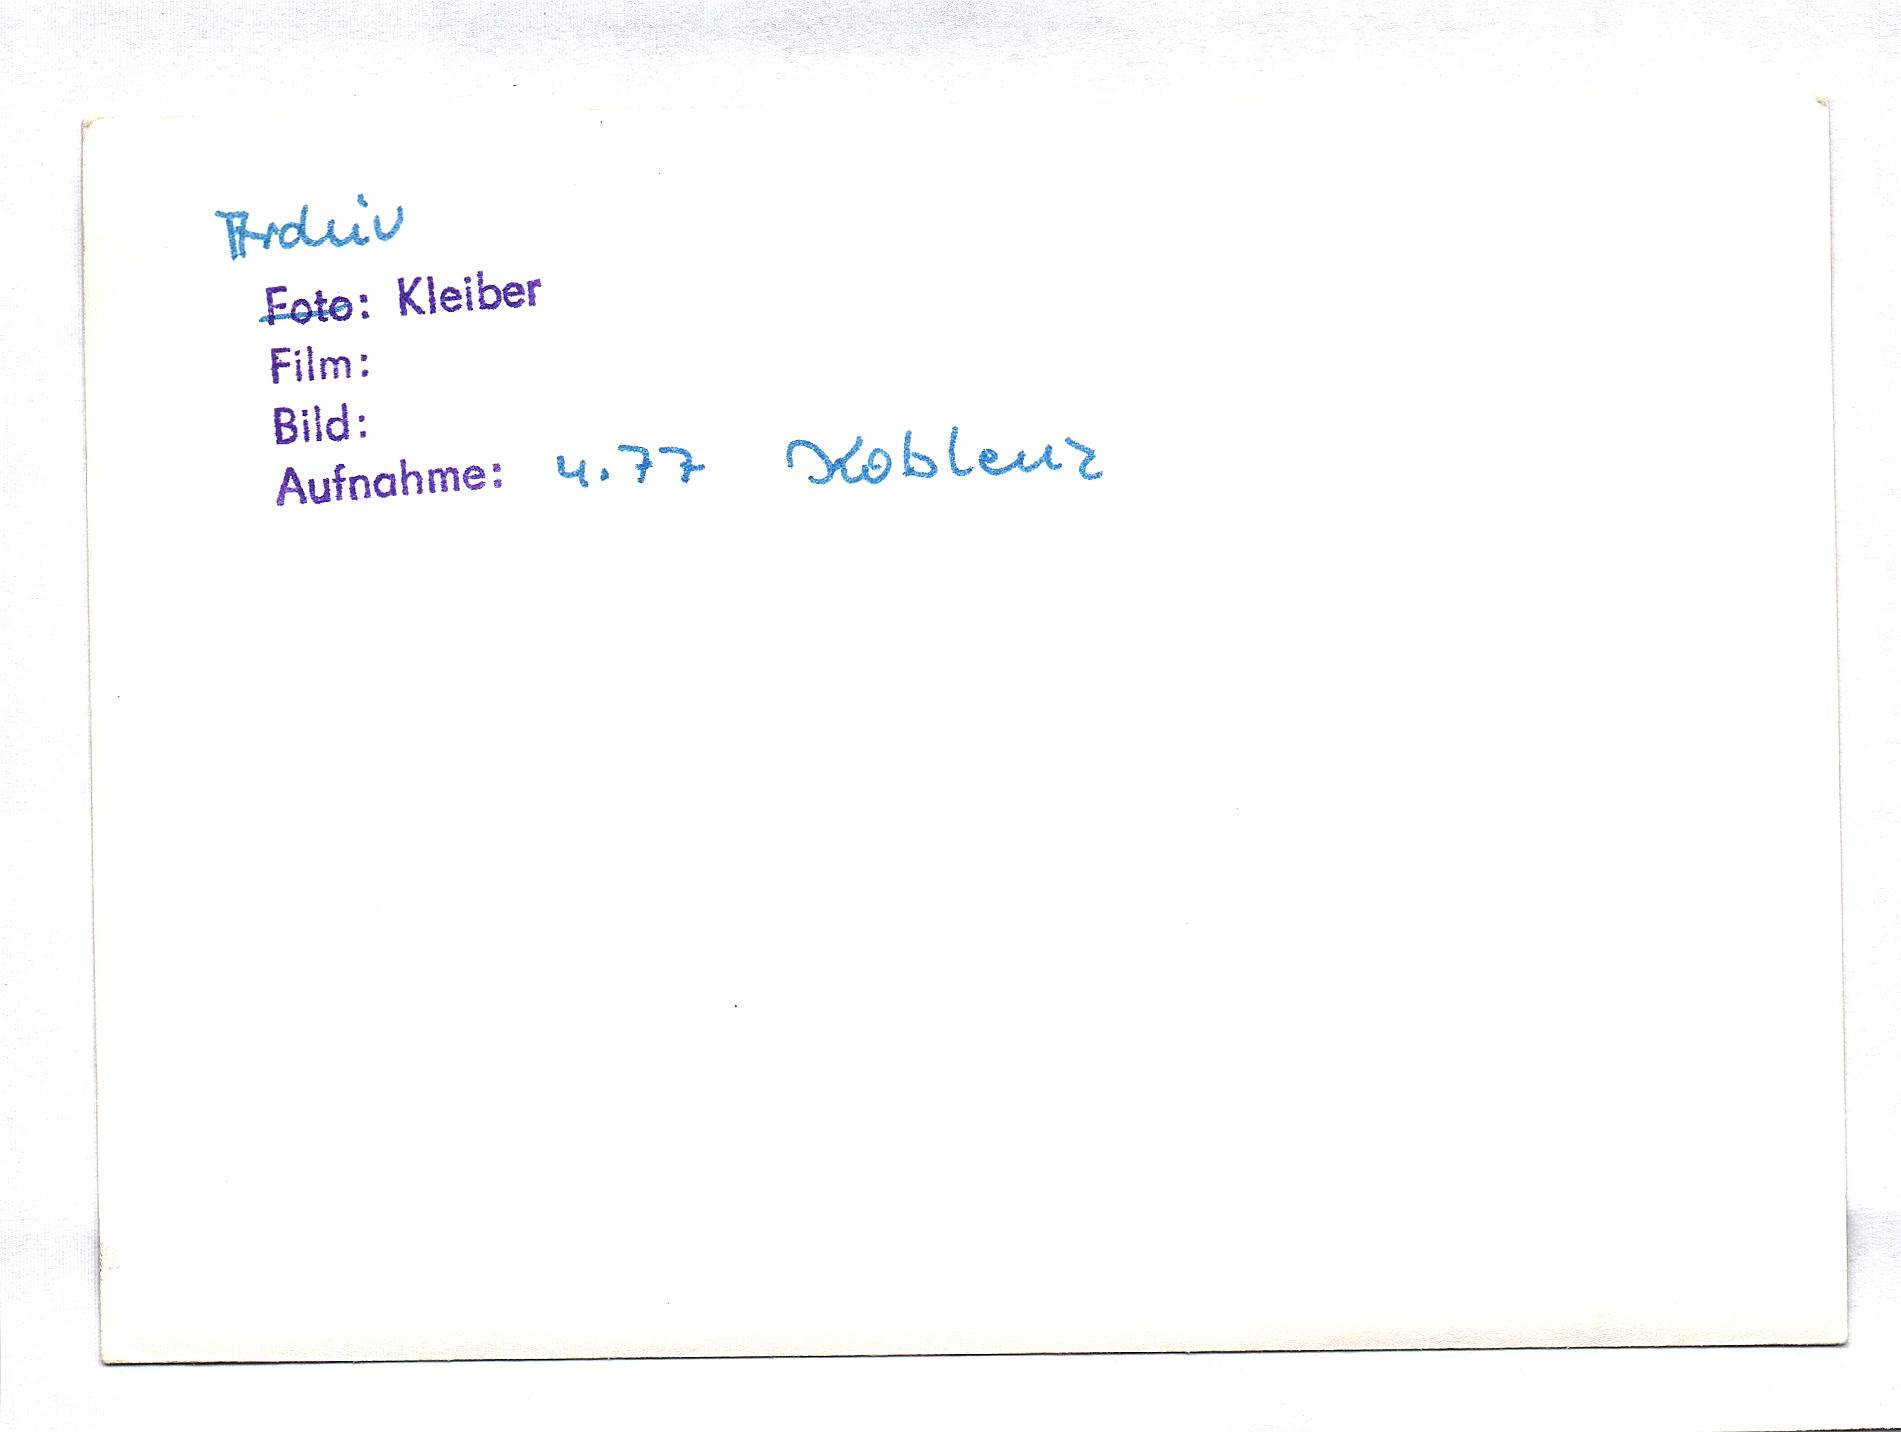 Archiv
Foto: Kleiber
Film:
Bild:
Aufnahme: 4.77 Koblenz